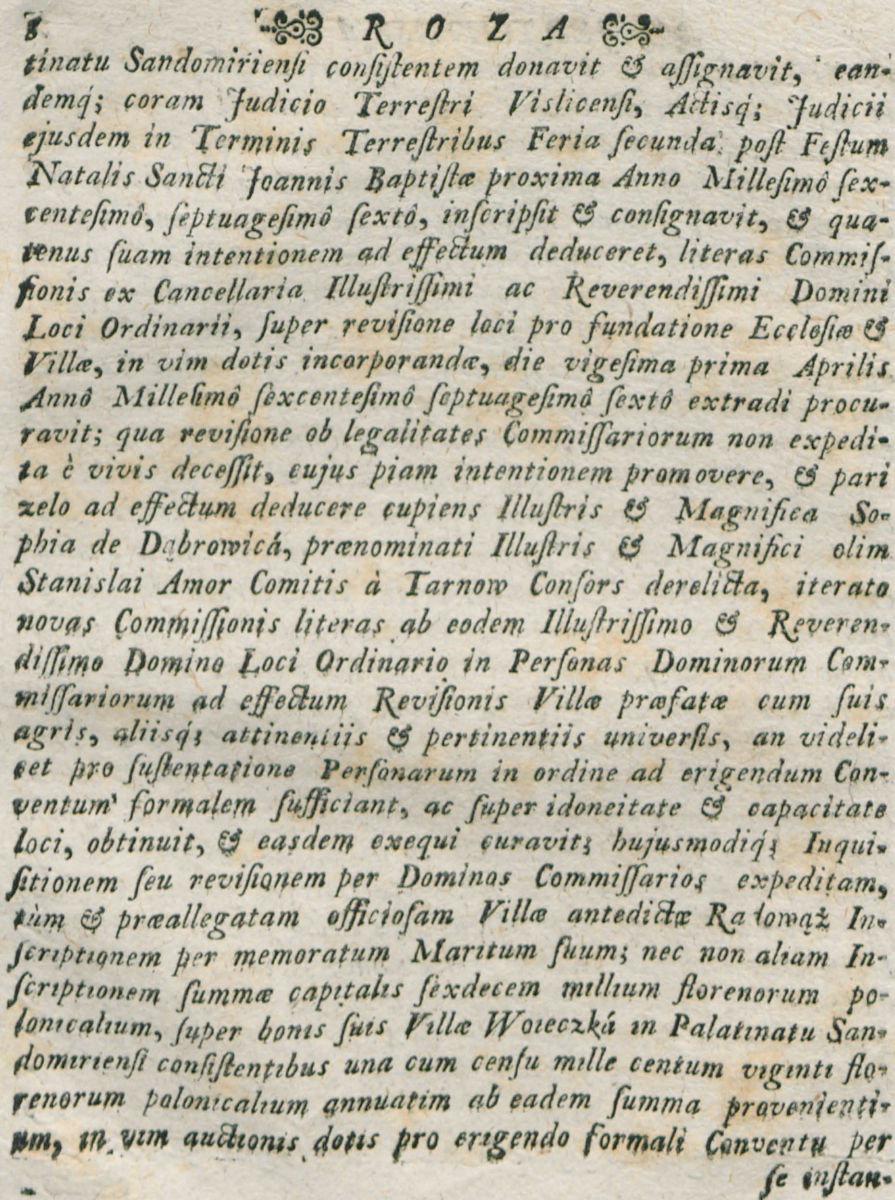 8 ROZA
tinatu Sandomiriensi consistentem donavit & assignavit, ean-
demq́; coram Judicio Terrestri Vislicensi, Actisq́; Judicii
ejusdem in Terminis Terrestribus Feria secunda post Festum
Natalis Sancti Joannis Baptistæ proxima Anno Millesimô sex-
centesimô, septuagesimô sextô, inscripsit & consignavit, & qua-
tenus suam intentionem ad effectum deduceret, literas Commis-
sionis ex Cancellaria Illustrissimi ac Reverendissimi Domini
Loci Ordinarii, super revisione loci pro fundatione Ecclesiæ &
Villæ, in vim dotis incorporandæ, die vigesima prima Aprilis
Annô Millesimô sexcentesimô septuagesimô sextô extradi procu-
ravit; qua revisione ob legalitates Commissariorum non expedi-
ta è vivis decessit, cujus piam intentionem promovere, & pari
zelo ad effectum deducere cupiens Illustris & Magnifica So-
phia de Dąbrowicá, prænominati Illustris & Magnifici olim
Stanislai Amor Comitis à Tarnow Consors derelicta, iterato
novas Commissionis literas ab eodem Illustrissimo & Reveren-
dissimo Domino Loci Ordinario in Personas Dominorum Com-
missariorum ad effectum Revisionis Villæ præfatæ cum suis
agris, aliisq́; attinentiis & pertinentiis universis, an videli-
cet pro sustentatione Personarum in ordine ad erigendum Con-
ventum formalem sufficiant, ac super idoneitate & capacitate
loci, obtinuit, & easdem exequi curavit; hujusmodiq́; Inqui-
sitionem seu revisionem per Dominos Commissarios expeditam,
tùm & præallegatam officiosam Villæ antedictæ Ratowąż In-
scriptionem per memoratum Maritum suum; nec non aliam In-
scriptionem summæ capitalis sexdecem millium florenorum po-
lonicalium, super bonis suis Villæ Woieczká in Palatinatu San-
domiriensi consistentibus una cum censu mille centum viginti flo-
renorum polonicalium annuatim ab eadem summa provenienti-
um, in vim auctionis dotis pro erigendo formali Conventu per
se instan-